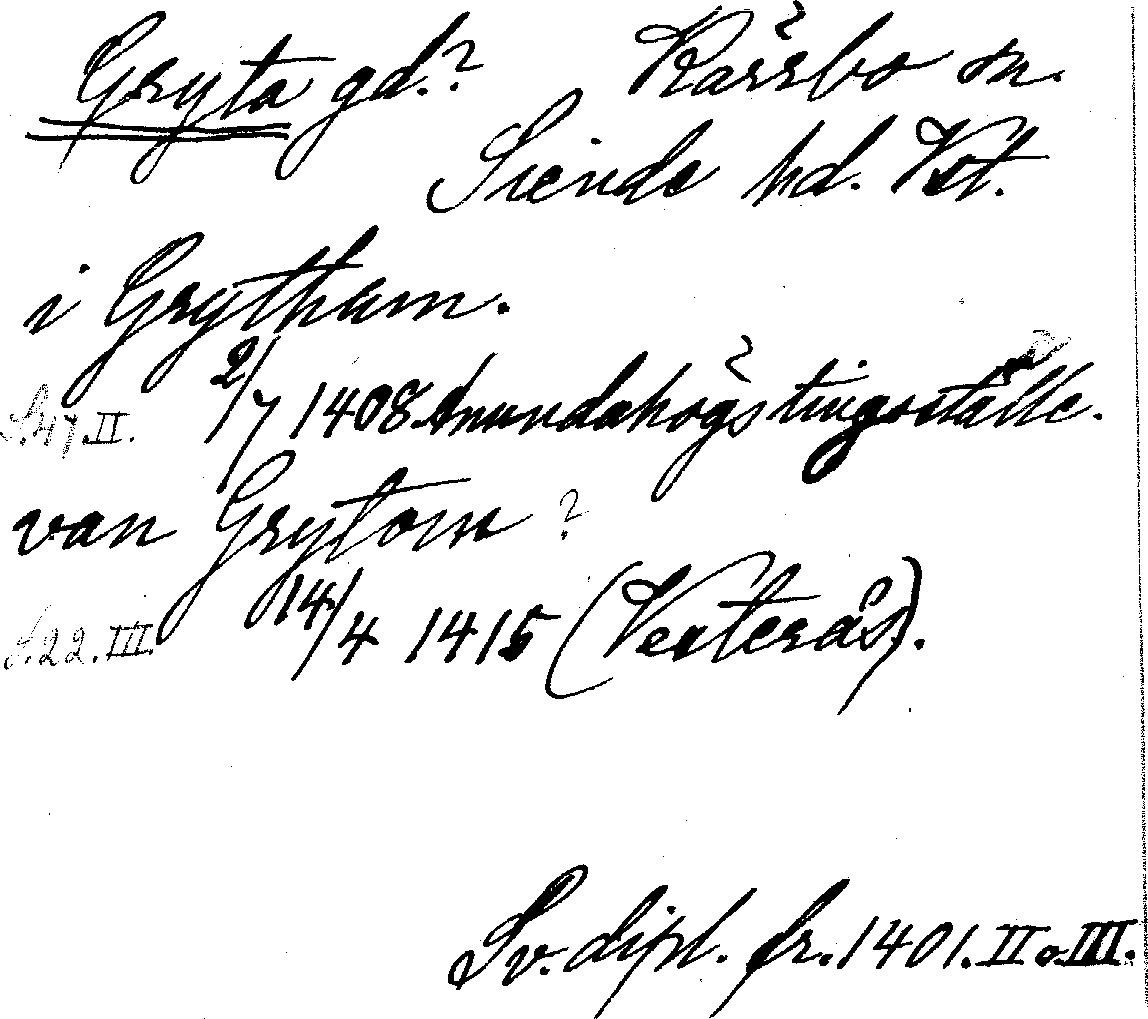 Gryta gd.? Kärrbo sn.
Siende hd. Vst.
i Grytham.
S. 47. II. 2/7 1408. Anundahögs tingställe.
van Grytom ?
S. 22. III. 14/4 1415 (Vesterås).
Sv. dipl. fr. 1401. II o. III.